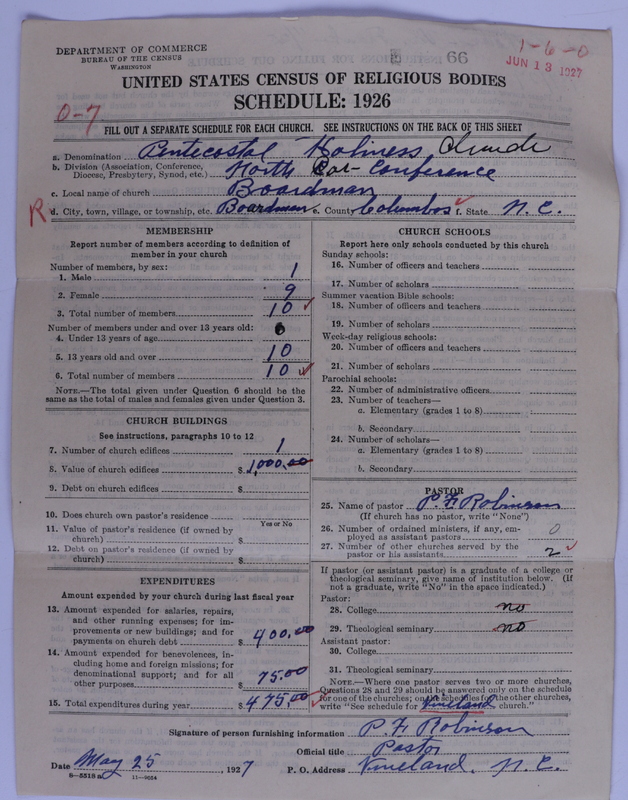 DEPARTMENT OF COMMERCE
BUREAU OF THE CENSUS
WASHINGTON
66
1-6-0
JUN 13 1927
UNITED STATES CENSUS OF RELIGIOUS BODIES
SCHEDULE: 1926
0-7
FILL OUT A SEPARATE SCHEDULE FOR EACH CHURCH. SEE INSTRUCTIONS ON THE BACK OF THIS SHEET
a. Denomination Pentecostal Holiness Church
b. Division (Association, Conference, Diocese, Presbytery, Synod, etc.) North Car- Conference
c. Local name of church Boardman
R d. City, town, village, or township, etc. Boardman e. County Columbos f. State N.C.
MEMBERSHIP
Report number of members according to definition of
member in your church
Number of members, by sex:
1. Male 1
2. Female 9
3. Total number of members 10
Number of members under and over 13 years old:
4. Under 13 years of age 0
5. 13 years old and over 10
6. Total number of members 10
NOTE.—The total given under Question 6 should be the
same as the total of males and females given under Question 3.
CHURCH BUILDINGS
See instructions, paragraphs 10 to 12
7. Number of church edifices 1
8. Value of church edifices $ 1,000.00
9. Debt on church edifices $
10. Does church own pastor's residence
Yes or No
11. Value of pastor's residence (if owned by
church) $
12. Debt on pastor's residence (if owned by
church) $
EXPENDITURES
Amount expended by your church during last fiscal year
13. Amount expended for salaries, repairs,
and other running expenses; for im-
provements or new buildings; and for
payments on church debt $ 400.00
14. Amount expended for benevolences, in-
cluding home and foreign missions; for
denominational support; and for all
other purposes $ 75.00
15. Total expenditures during year $ 475.00
CHURCH SCHOOLS
Report here only schools conducted by this church
Sunday schools:
16. Number of officers and teachers
17. Number of scholars
Summer vacation Bible schools:
18. Number of officers and teachers
19. Number of scholars
Week-day religious schools:
20. Number of officers and teachers
21. Number of scholars
Parochial schools:
22. Number of administrative officers
23. Number of teachers—
a. Elementary (grades 1 to 8)
b. Secondary
24. Number of scholars—
a. Elementary (grades 1 to 8)
b. Secondary
PASTOR
25. Name of pastor P. F. Robinson
(If church has no pastor, write "None")
26. Number of ordained ministers, if any, em-
ployed as assistant pastors 0
27. Number of other churches served by the
pastor or his assistants 2
If pastor (or assistant pastor) is a graduate of a college or
theological seminary, give name of institution below. (If
not a graduate, write "No" in the space indicated.)
Pastor:
28. College no
29. Theological seminary no
Assistant pastor:
30. College
31. Theological seminary
NOTE.—Where one pastor serves two or more churches,
Questions 28 and 29 should be answered only on the schedule
for one of the churches; on the schedules for the other churches,
write "See schedule for Vineland church."
Signature of person furnishing information P. F. Robinson
Official title Pastor
Date May 25, 1927 P. O. Address Vineland, N.C.
8—5518 a 11—9064